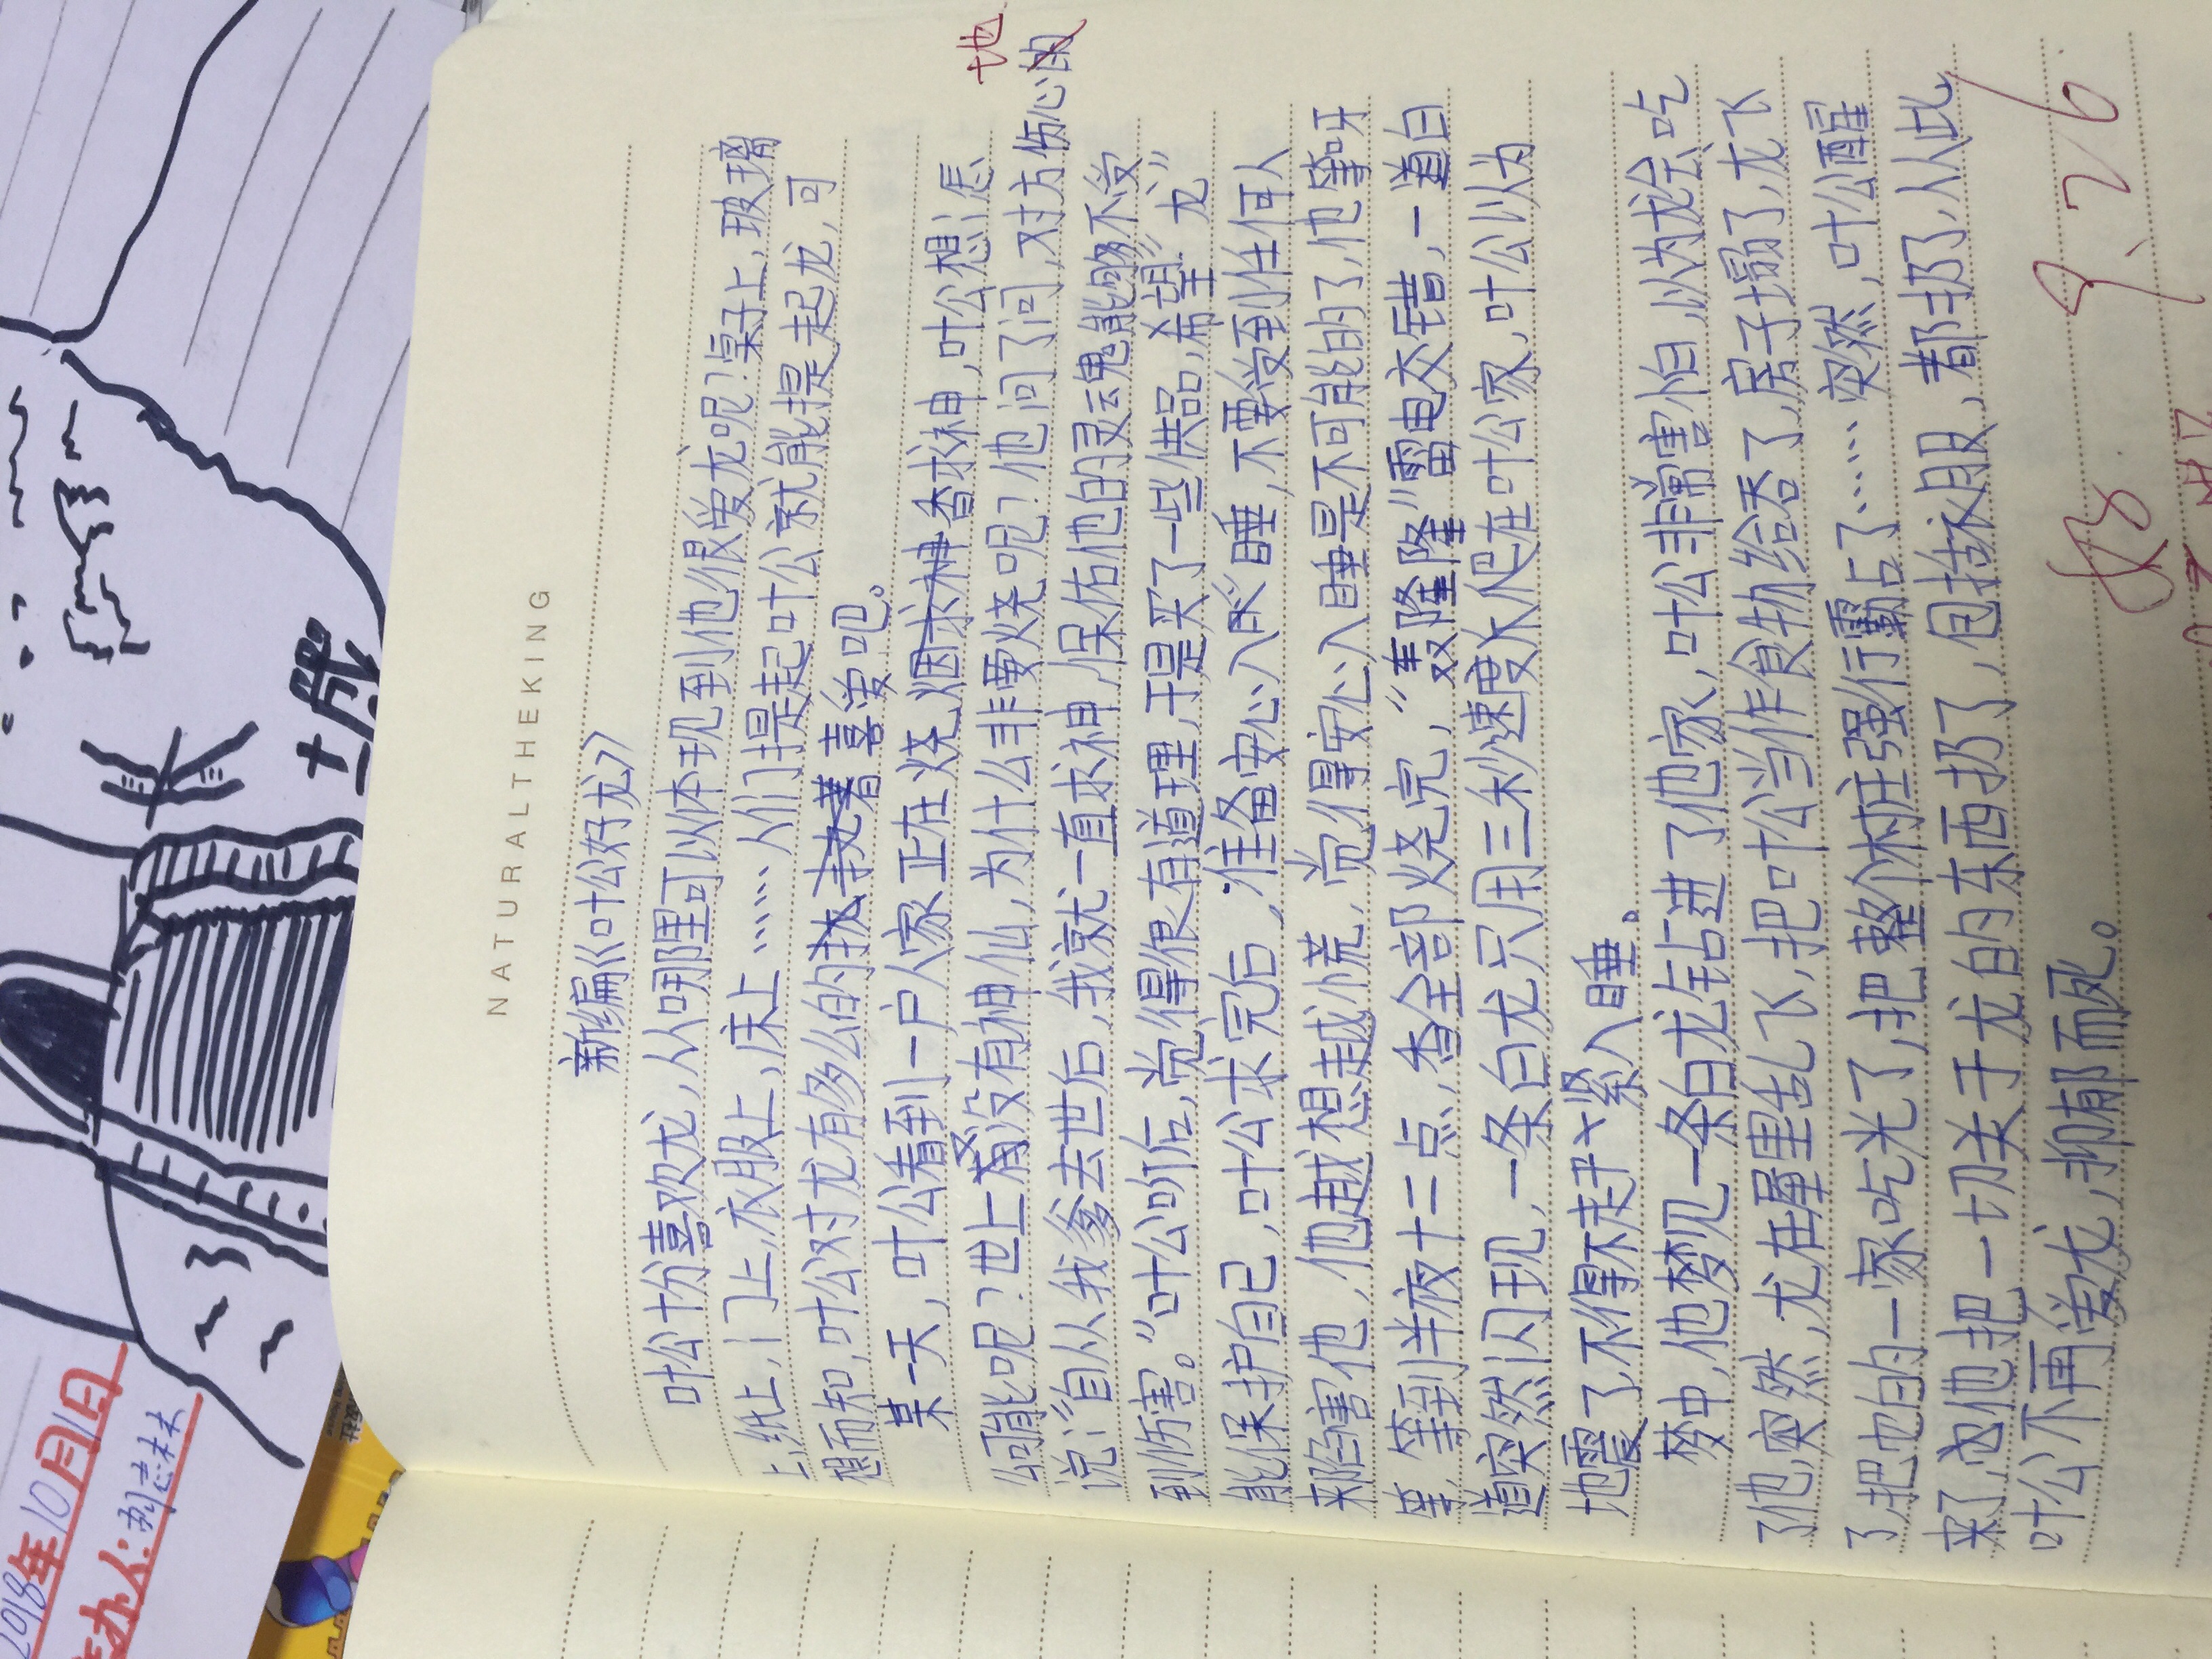 NATURALTHEKING
新编《叶公好龙》
叶公十份喜欢龙,从哪里可以体现到他很爱龙呢?桌子上,玻璃
上,纸上,门上,衣服上,床上……人们提起叶公就能提起龙,可
想而知,叶公对龙有多么的执着喜爱吧。
某一天,叶公看到一户人家正在烧香求神,叶公想:怎
么可能呢?世上有没有神仙,为什么非要烧呢?他问了问,对方伤心的
地
说:“自从我爹去世后,我就一直求神,保佑他的灵魂能够不受
到伤害。”叶公听后,觉得很有道理,于是买了一些供品,希望“龙”
能保护自己,叶公求完后,准备安心入睡,不要受到任何人
来陷害他,他越想越慌,觉得安心入睡是不可能的了,他等呀
等,等到半夜十二点,香全部烧完,“轰隆隆”雷电交错,一道白
道突然闪现,一条白龙只用三秒速度爬在叶公家,叶公以为
地震了,不得不赶紧入睡。
梦中,他梦见一条白龙钻进了他家,叶公非常害怕,以为龙会吃
了他,突然,龙在屋里乱飞,把叶公当作食物给吞了,房子塌了,龙飞
了,把他的一家吃光了,把整个村庄强行霸占了……突然,叶公醒
来了,他把一切关于龙的东西扔了,包括衣服,都扔了,从此
叶公不再爱龙,抑郁而死。
好 9.26
2018年10月1日